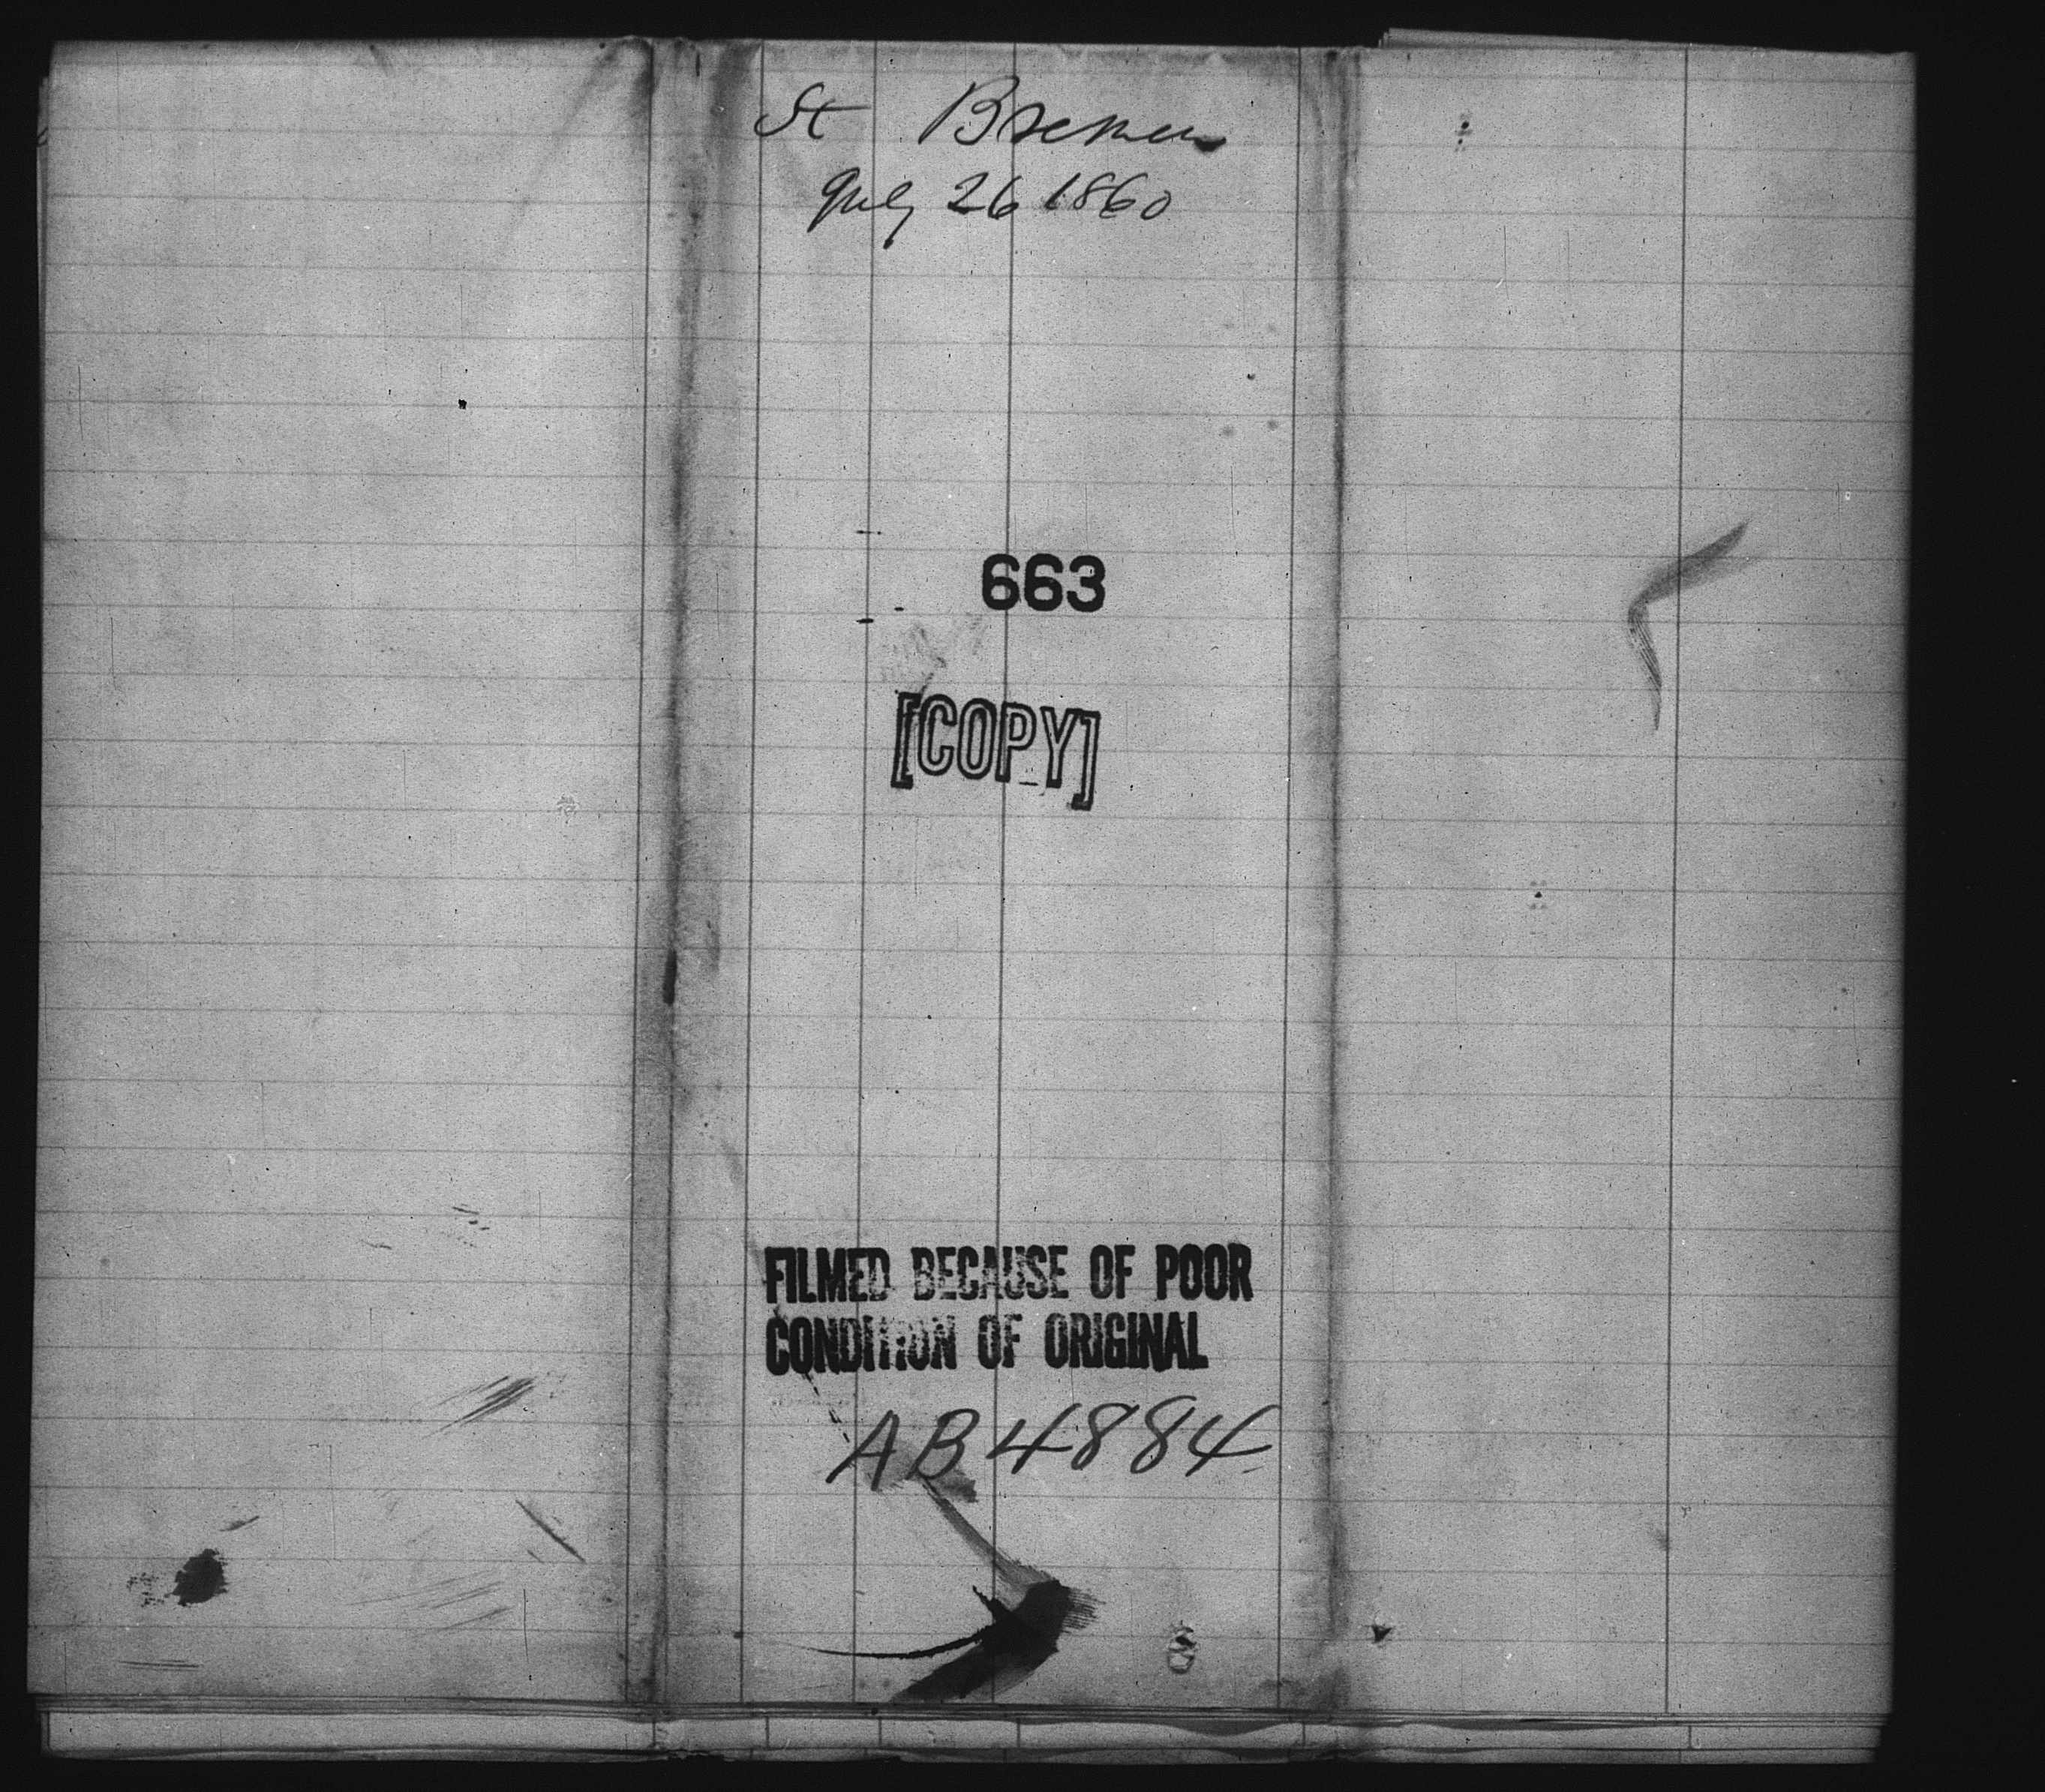 St Bremen
July 26 1860
663
[COPY]
FILMED BECAUSE OF POOR
CONDITION OF ORIGINAL
AB4884